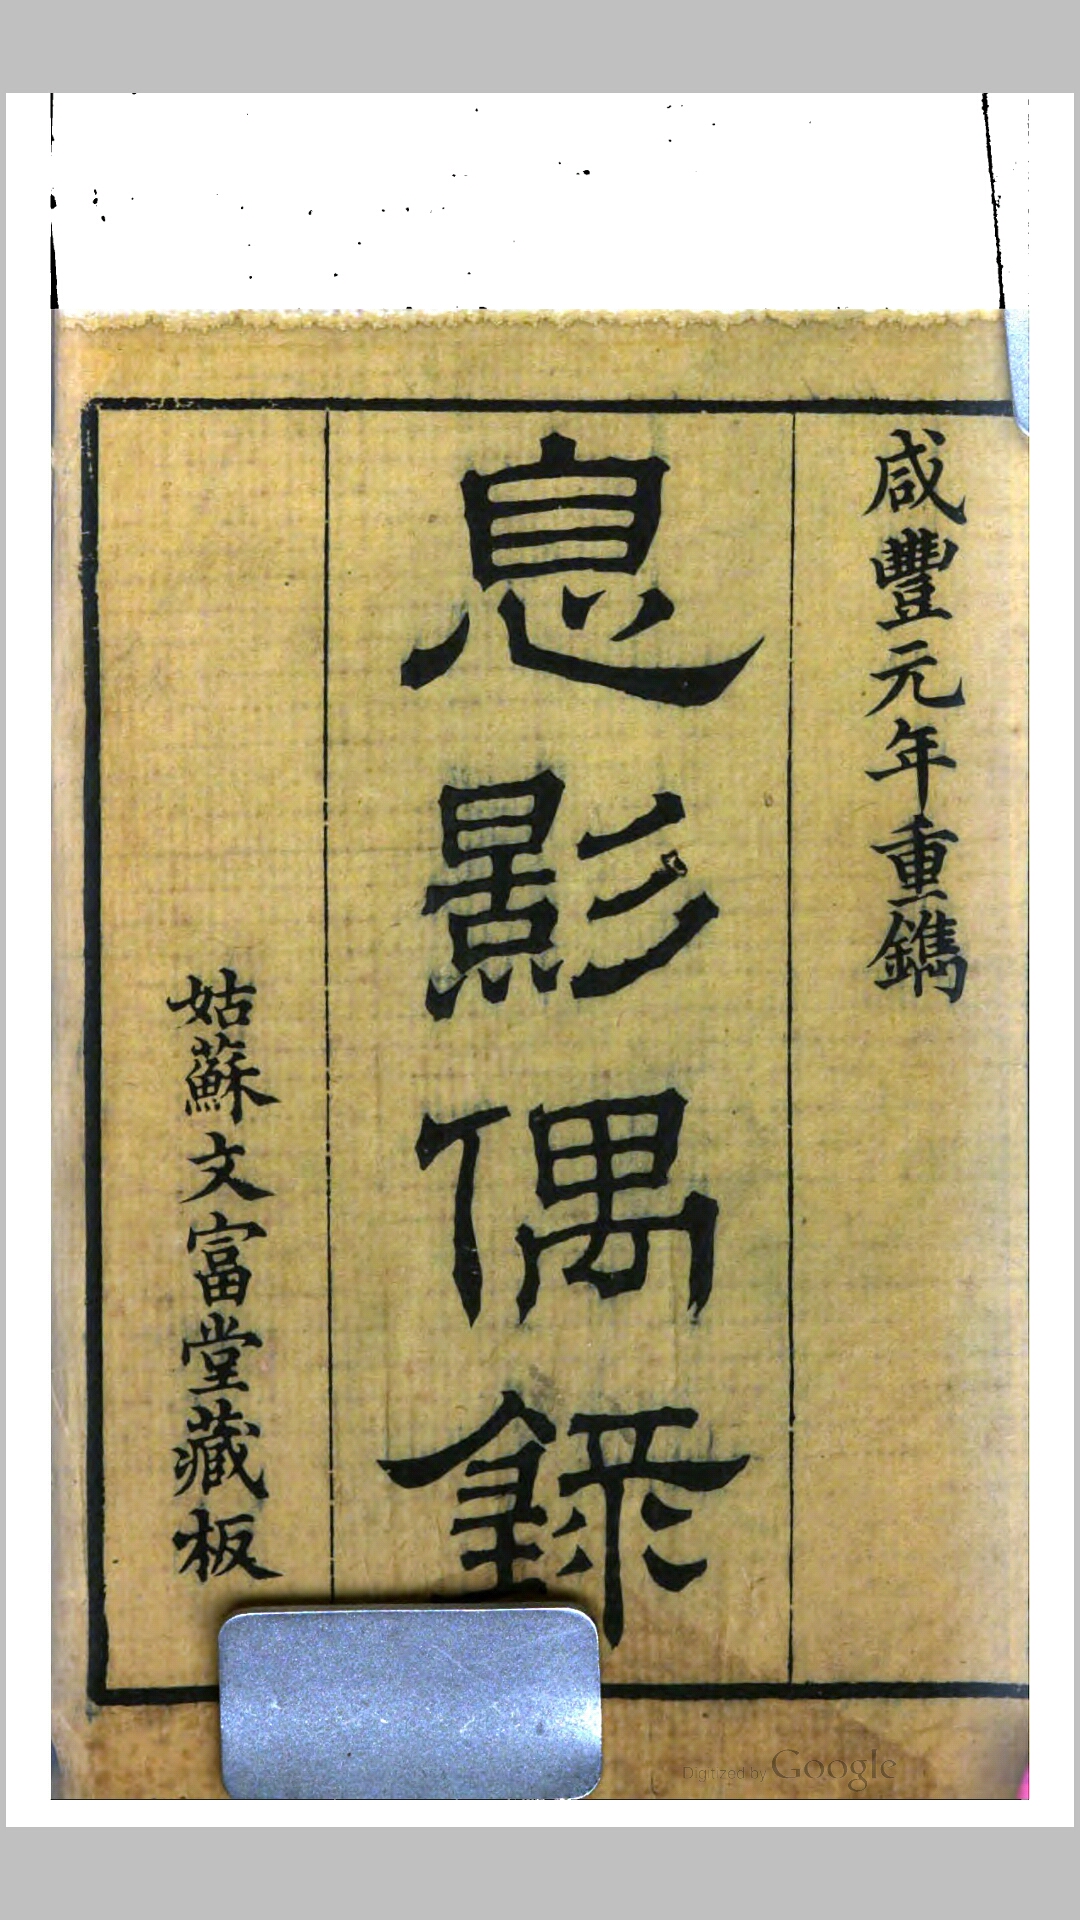 咸豐元年重鐫
息影偶錄
姑蘇文富堂藏板
Digitized by Google